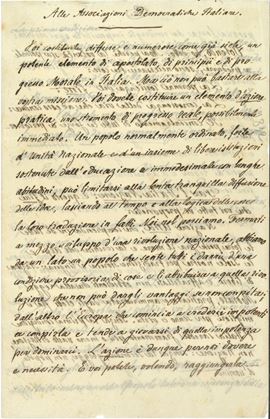 Alle Associazioni Democratiche Italiane
Voi costituite, diffuse e numerose come già siete, un
potente elemento di apostolato, di principii e di pro
gresso Morale in Italia. Ma ciò non può bastare alla
vostra missione. Voi dovete costituire un elemento d'azione
pratica, uno stromento di progresso reale, possibilmente
immediato. Un popolo normalmente ordinato, forte
d'Unità nazionale e d'un insieme di libere istituzioni
sostenute dall'educazione a immedesimate con lunghe
abitudini, può limitarsi alla lenta tranquilla diffusione
dell'idea, lasciando al tempo e alla logica delle cose
la loro traduzione in fatti. Noi nol possiamo. Fermati
a mezzo sviluppo d'una rivoluzione nazionale, abbiamo
da un lato un popolo che sente tutti i danni d'una
condizione provvisoria di cose e li attribuisce a quella rivo
luzione che non può dargli vantaggi se non compiuta;
dall'altro l'Europa che comincia a crederci impotenti
a compirla e tende a giovarsi di quella impotenza
per dominarci. L'azione è dunque per noi dovere
e necessità. E voi potete, volendo, raggiungerla.